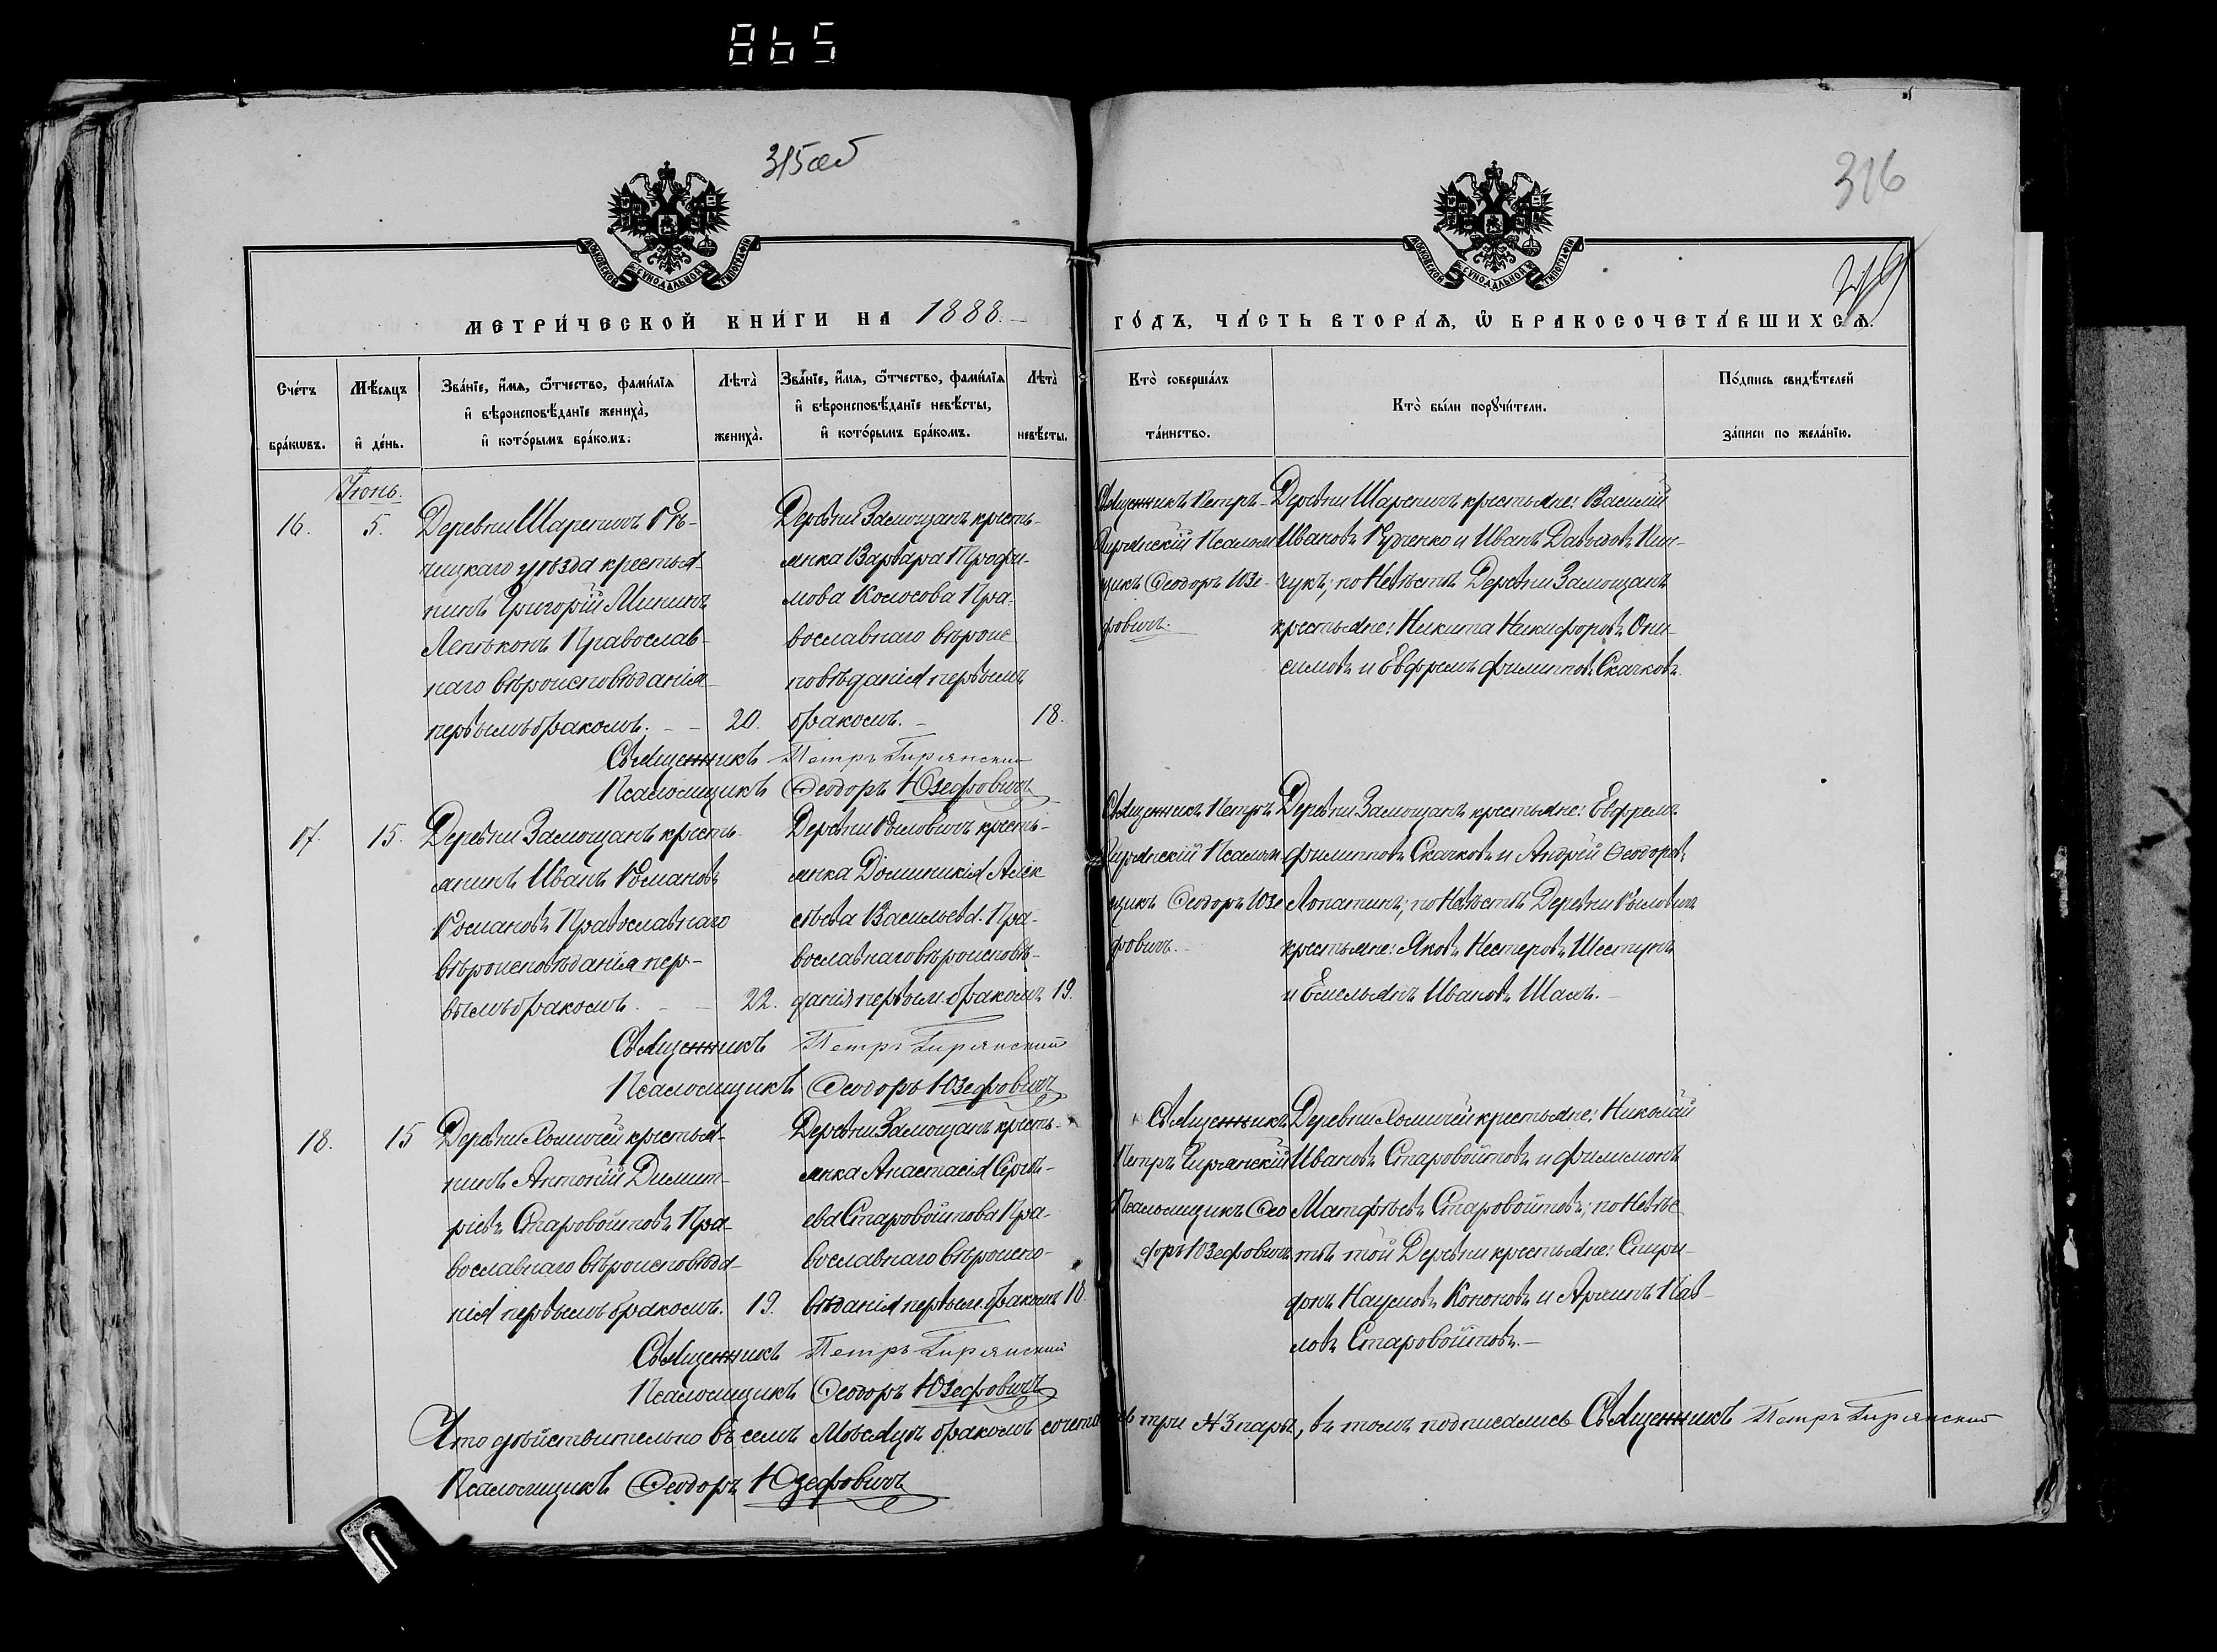 865
315 об
316
МОСКОВСКОЙ СѴНОДАЛЬНОЙ ТИПОГРАФІИ
МОСКОВСКОЙ СѴНОДАЛЬНОЙ ТИПОГРАФІИ
МЕТРИ́ЧЕСКОЙ КНИ́ГИ НА 1888.
ГО́ДЪ, ЧА́СТЬ ВТОРА́Ѧ, Ѽ БРАКОСОЧЕТА́ВШИХСѦ.
Сче́тъ бра́кѡвъ.
Мѣ́сѧцъ и҆ де́нь.
Зва́нїе, и҆́мѧ, ѻ҆́тчество, фамі́лїѧ
и҆ вѣроисповѣ́данїе жениха̀,
и҆ кото́рымъ бра́комъ.
Лѣ́та̀ жениха̀.
Зва́нїе, и҆́мѧ, ѻ҆́тчество, фамі́лїѧ
и҆ вѣроисповѣ́данїе невѣ́сты,
и҆ кото́рымъ бра́комъ.
Лѣ́та̀ невѣ́сты.
Кто̀ соверша́лъ та́инство.
Кто̀ бы́ли порꙋчи́тели.
По́дпись свидѣ́телей
за́писи по жела́нїю.
Іюнь.
16.
5.
Деревни Шарпиловъ Рѣ-
чицкаго уѣзда крестья-
нинъ Григорій Мининъ
Православ-
наго вѣроисповѣданія
первымъ бракомъ.
20.
Деревни Замощанъ кресть-
янка Варвара Трофи-
мова Колосова Пра-
вославнаго вѣроис
повѣданія первымъ
бракомъ.
18.
Священникъ Петръ
Гирянскій Псалом
щикъ Ѳеодоръ Юзе-
фовичъ.
крестьяне: Василій
Ивановъ и Иванъ Давыдовъ
по Невѣстѣ Деревни Замощанъ
крестьяне: Никита Никифоровъ Они-
симовъ и Евфремъ Филиповъ Скачковъ.
Священникъ Петръ Гирянскій
Псаломщикъ Ѳеодоръ Юзефовичъ
17.
15.
Деревни Замощанъ кресть-
янинъ Иванъ Романовъ
Романовъ Православнаго
вѣроисповѣданія пер-
вымъ бракомъ.
22.
Деревни кресть-
янка Доминикія Алек
сѣева Васильева. Пра-
вославнаго вѣроисповѣ-
данія первым. бракомъ
19.
Священникъ Петръ
Гирянскій Псалом
щикъ Ѳеодоръ Юзе
фовичъ.
Деревни Замощанъ крестьяне: Евфремъ
Филиповъ Скачковъ и Андрей Ѳеодоровъ
Лопатинъ; по Невѣстѣ Деревни
крестьяне: Яковъ Нестеровъ Шестунъ
и Емельянъ Ивановъ
Священникъ Петръ Гирянскій
Псаломщикъ Ѳеодоръ Юзефовичъ
18.
15
Деревни Хомичей крестья-
нинъ Антоній Димит-
ріевъ Старовойтовъ Пра-
вославнаго вѣроисповѣда-
нія первымъ бракомъ.
19.
Деревни Замощанъ кресть-
янка Анастасія Сергѣ-
ева Старовойтова Пра-
вославнаго вѣроиспо-
вѣданія первым. бракомъ
18.
Священникъ
Петръ Гирянскій
Псаломщикъ Ѳео
доръ Юзефовичъ
Деревни Хомичей крестьяне: Николай
Ивановъ Старовойтовъ и Филимонъ
Матфѣевъ Старовойтовъ; по Невѣс
тѣ той Деревни крестьяне: Спири-
донъ Наумовъ Кононовъ и Пав-
ловъ Старовойтовъ.
Священникъ Петръ Гирянскій
Псаломщикъ Ѳеодоръ Юзефовичъ
Что дѣйствительно въ семъ Мѣсяцѣ бракомъ три № 3 пары, въ томъ подписались Священникъ Петръ Гирянскій
Псаломщикъ Ѳеодоръ Юзефовичъ